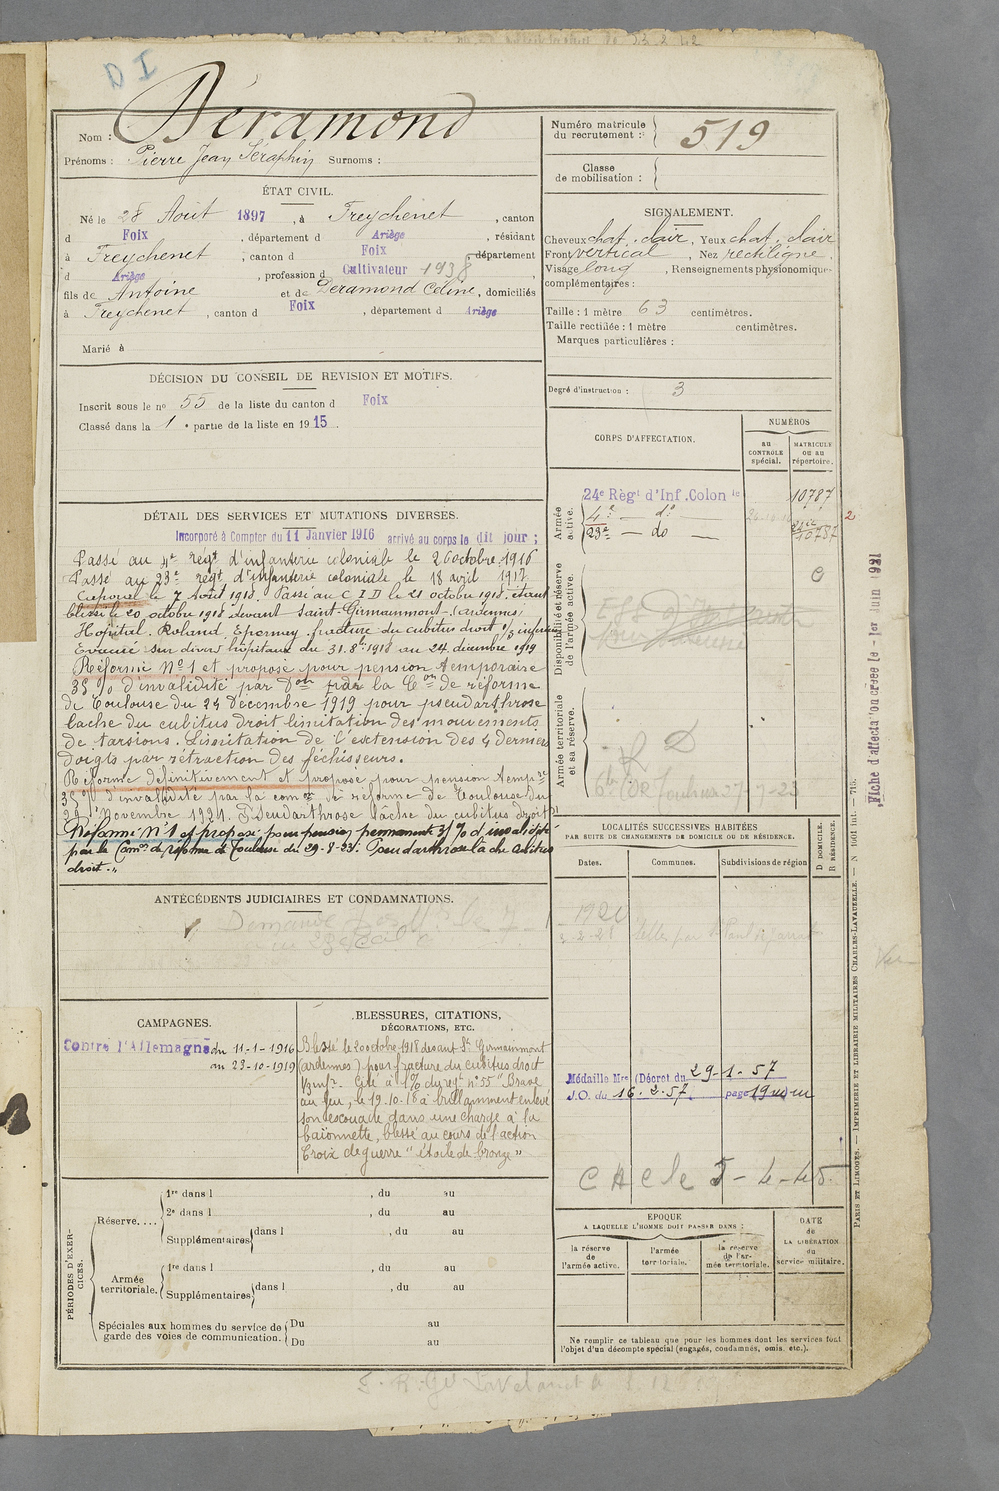 D I
Nom : Déramond
Prénoms : Pierre Jean Séraphin Surnoms :
ÉTAT CIVIL.
Né le 28 Août 1897, à Freychenet, canton
d Foix, département d Ariège, résidant
à Freychenet, canton d Foix, département
d Ariège, profession d Cultivateur 1938,
fils de Antoine et de Deramond Céline, domiciliés
à Freychenet, canton d Foix, département d Ariège
Marié à
DÉCISION DU CONSEIL DE REVISION ET MOTIFS.
Inscrit sous le no 55 de la liste du canton d Foix
Classé dans la 1e partie de la liste en 1915.
DÉTAIL DES SERVICES ET MUTATIONS DIVERSES.
Incorporé à Compter du 11 Janvier 1916 arrivé au corps le dit jour ;
Passé au 4e régt d'infanterie coloniale le 26 octobre 1916
Passé au 23e régt d'infanterie coloniale le 18 avril 1917
Caporal le 7 Août 1918. Passé au C I D le 21 octobre 1918, étant
blessé le 20 octobre 1918 devant Saint-Germainmont (ardennes)
Hopital Roland, Epernay, fracture du cubitus droit 1/3 inférieur
Evacué sur divers hôpitaux du 31. 8bre 1918 au 24 décembre 1919
Réformé No 1 et proposé pour pension temporaire
35 % d'invalidité par Don par la Con de réforme
de Toulouse du 24 Décembre 1919 pour pseudarthrose
lache du cubitus droit limitation des mouvements
de torsions. Limitation de l'extension des 4 derniers
doigts par rétraction des fléchisseurs.
Réformé définitivement et proposé pour pension tempre
35 % d'invalidité par la comon de réforme de Toulouse du
novembre 1921. Pseudarthrose lâche du cubitus droit
Réformé No 1 et proposé pour pension permanente 35 % d'invalidité
par la Comon de réforme de Toulouse du 29-8-23: Pseudarthrose lâche cubitus
droit.
ANTÉCÉDENTS JUDICIAIRES ET CONDAMNATIONS.
Demande
CAMPAGNES.
Contre l'Allemagne du 11-1-1916
au 23-10-1919
BLESSURES, CITATIONS,
DÉCORATIONS, ETC.
Blessé le 20 octobre 1918 devant St Germainmont
(ardennes) pour fracture du cubitus droit
1/3 infr. Cité à l'% du régt no 55 "Brave
au feu, le 19.10.18 à brillamment enlevé
son escouade dans une charge à la
baïonnette, blessé au cours de l'action
Croix de guerre "étoile de bronze"
PÉRIODES D'EXERCICES.
Réserve....
1re dans l , du au
2e dans l , du au
Supplémentaires dans l , du au
Armée territoriale.
1re dans l , du au
Supplémentaires dans l , du au
Spéciales aux hommes du service de garde des voies de communication.
Du au
Du au
Numéro matricule du recrutement : 519
Classe de mobilisation :
SIGNALEMENT.
Cheveux chat. clair, Yeux chat. clair
Front vertical, Nez rectiligne,
Visage long, Renseignements physionomiques
complémentaires :
Taille : 1 mètre 63 centimètres.
Taille rectifiée : 1 mètre centimètres.
Marques particulières :
Degré d'instruction : 3
CORPS D'AFFECTATION.
NUMÉROS
au CONTRÔLE spécial.
MATRICULE OU AU répertoire.
Armée active.
24e Régt d'Inf. Colon le 10787
4e — do —
23e — do — 10757
2
Disponibilité et réserve de l'armée active.
Armée territoriale et sa réserve.
R D
Toulouse 27-7-23
LOCALITÉS SUCCESSIVES HABITÉES
PAR SUITE DE CHANGEMENTS DE DOMICILE OU DE RÉSIDENCE.
D. DOMICILE.
R. RÉSIDENCE.
Dates.
Communes.
Subdivisions de région
Médaille Mre (Décret du 29-1-57
J.O. du 16.2.57 page 19
C A C le 5-4-45
EPOQUE
A LAQUELLE L'HOMME DOIT PASSER DANS :
la réserve de l'armée active.
l'armée territoriale.
la réserve de l'armée territoriale.
DATE de LA LIBÉRATION du service militaire.
Ne remplir ce tableau que pour les hommes dont les services font
l'objet d'un décompte spécial (engagés, condamnés, omis, etc.).
Fiche d'affectation créée le 1er Juin 1921
PARIS ET LIMOGES. — IMPRIMERIE ET LIBRAIRIE MILITAIRES CHARLES-LAVAUZELLE. — N 1001 Int. — 715.